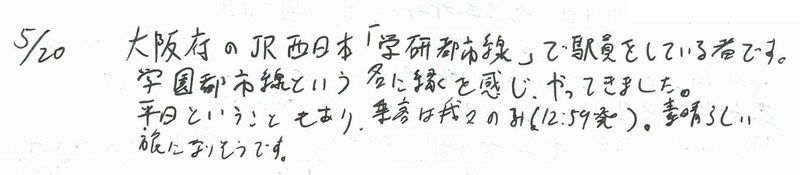 5/20 大阪府のJR西日本「学研都市線」で駅員をしている者です。
学園都市線という名に縁を感じ、やってきました。
平日ということもあり、乗客は我々のみ(12:59発)。素晴らしい
旅になりそうです。